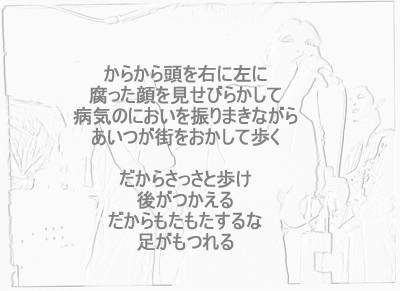 からから頭を右に左に
腐った顔を見せびらかして
病気のにおいを振りまきながら
あいつが街をおかして歩く
だからさっさと歩け
後がつかえる
だからもたもたするな
足がもつれる